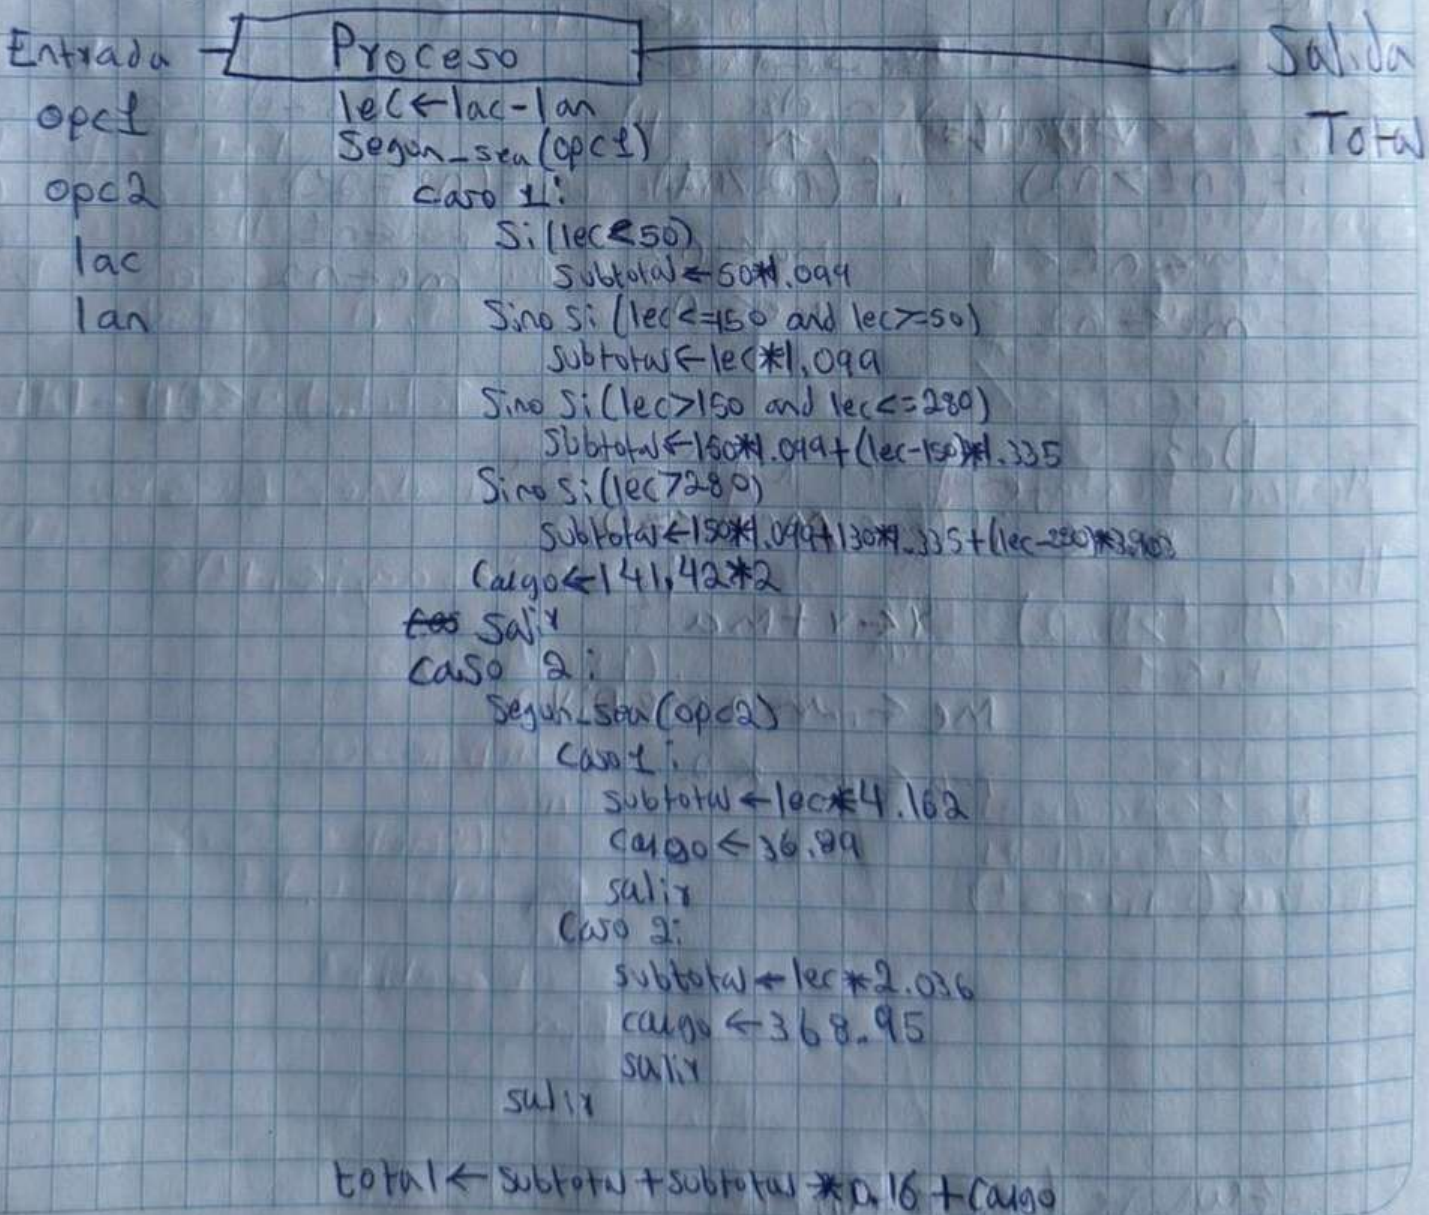 Entrada Proceso Salida
opc1 lec←lac-lan Total
Segun_sea(opc1)
opc2 caso 1:
Si(lec<50)
lac subtotal←50*1.099
lan Sino Si (lec<=150 and lec>=50)
subtotal←lec*1.099
Sino Si(lec>150 and lec<=280)
Subtotal←150*1.099+(lec-150)*1.335
Sino Si(lec>280)
subtotal←150*1.099+130*1.335+(lec-280)*3.903
Cargo←141.42*2
salir
caso 2:
Segun_sea(opc2)
Caso 1:
subtotal←lec*4.162
cargo←36.89
salir
Caso 2:
subtotal←lec*2.036
cargo←368.95
salir
salir
total←subtotal+subtotal*0.16+Cargo